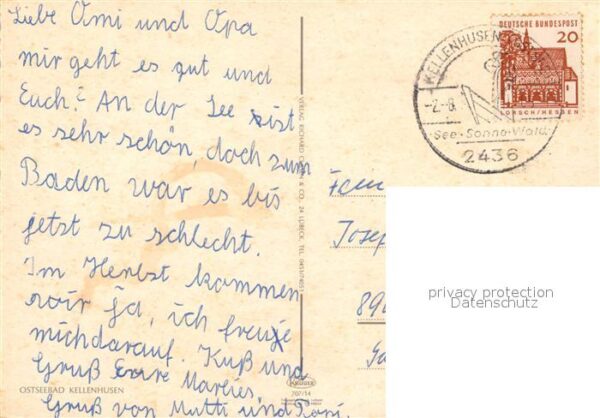 Liebe Omi und Opa
mir geht es gut und
Euch? An der See ist
es sehr schön, doch zum
Baden war es bis
jetzt zu schlecht.
Im Herbst kommen
wir ja, ich freue
mich darauf. Kuß und
Gruß Eure Marlies.
Gruß von Mutti und
OSTSEEBAD KELLENHUSEN
KRÜGER
707/14
VERLAG RICHARD & CO., 24 LÜBECK, TEL.
KELLENHUSEN
-2.-8.
See-Sonne-Wald
2436
DEUTSCHE BUNDESPOST
20
LORSCH/HESSEN
Fam
Josep
privacy protection
Datenschutz